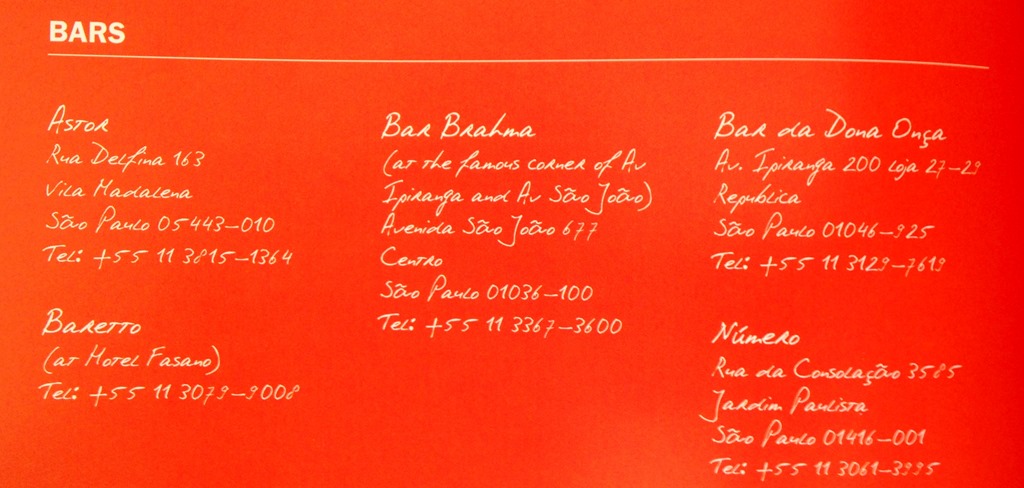 BARS
Astor
Rua Delfina 163
Vila Madalena
São Paulo 05443-010
Tel: +55 11 3815-1364
Baretto
(at Hotel Fasano)
Tel: +55 11 3079-9008
Bar Brahma
(at the famous corner of Av
Ipiranga and Av São João)
Avenida São João 677
Centro
São Paulo 01036-100
Tel: +55 11 3367-3600
Bar da Dona Onça
Av. Ipiranga 200 loja 27-29
Republica
São Paulo 01046-925
Tel: +55 11 3129-7619
Número
Rua da Consolação 3585
Jardim Paulista
São Paulo 01416-001
Tel: +55 11 3061-3995